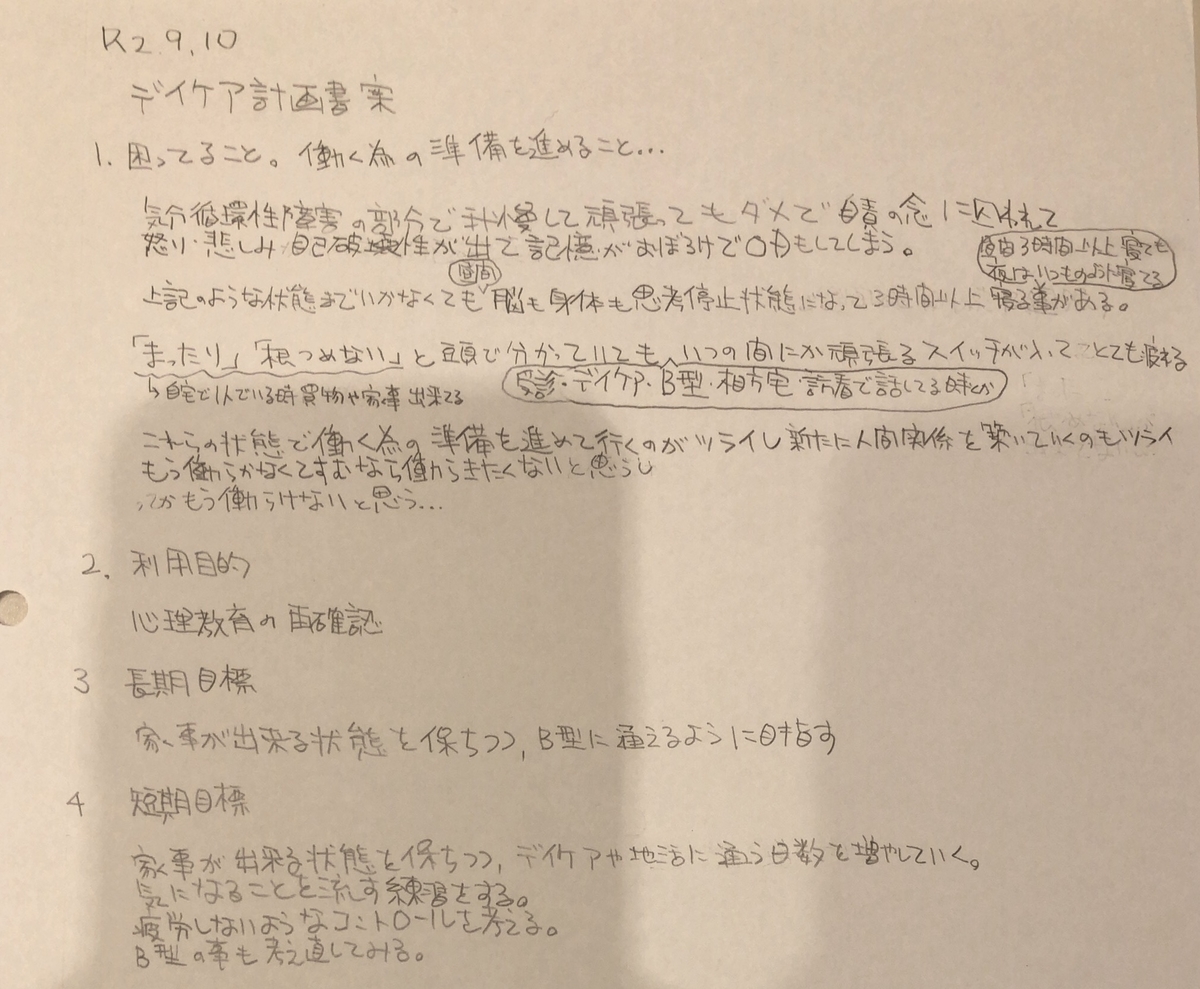 R2.9.10
デイケア計画書案
1. 困ってること。働く為の準備を進めること…
気分循環性障害の部分で我慢して頑張ってもダメで自責の念に囚われて
怒り・悲しみ 自己破壊性が出て記憶がおぼろけでODもしてしまう。
昼間3時間以上寝ても
夜はいつものように寝てる
昼間
上記のような状態までいかなくても脳も身体も思考停止状態になって3時間以上寝る事がある。
「まったり」「根つめない」と頭で分かっていても、いつの間にか頑張るスイッチが入ってとても疲れる
↳自宅で1人でいる時買物や家事出来てる
受診・デイケア・B型・相方宅・訪看で話してる時とか
これらの状態で働く為の準備を進めて行くのがツライし新たに人間関係を築いていくのもツライ
もう働らかなくてすむなら働らきたくないと思うし
ってかもう働らけないと思う…
2. 利用目的
心理教育の再確認
3 長期目標
家事が出来る状態を保ちつつ, B型に通えるように目指す
4 短期目標
家事が出来る状態を保ちつつ, デイケアや地活に通う日数を増やしていく。
気になることを流す練習をする。
疲労しないようなコントロールを考える。
B型の事も考え直してみる。